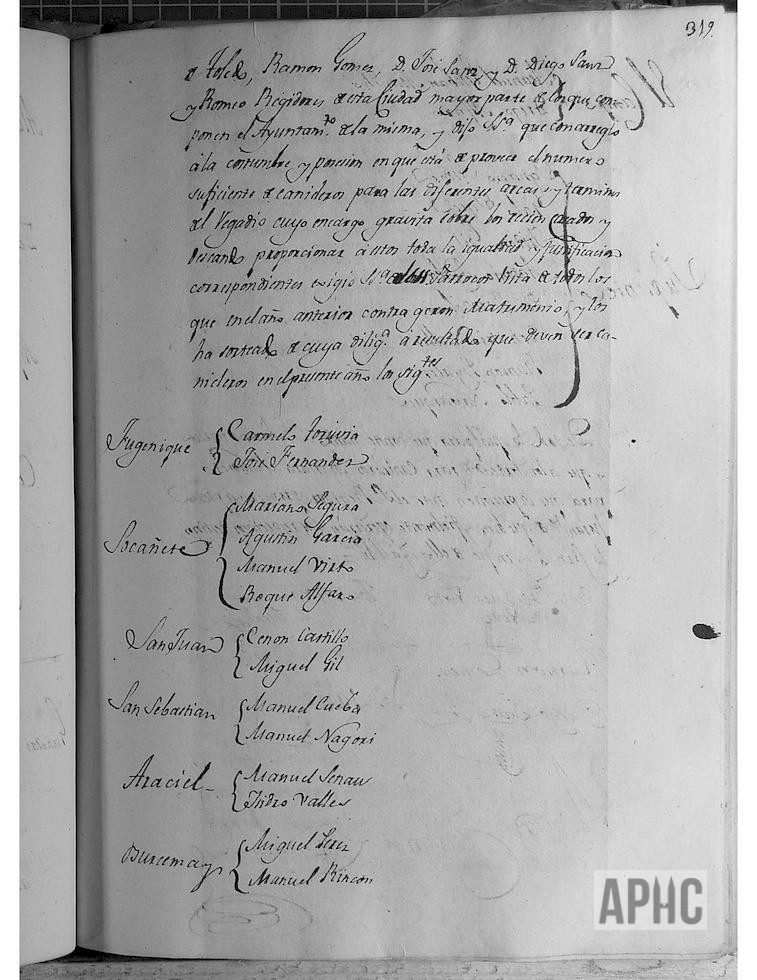 319.
de Toledo, Ramon Gomez, D. José Sanz y D. Diego Sanz
y Romeo Regidores de esta Ciudad mayor parte de los que com-
ponen el Ayuntam.to de la misma, y dijo S.S.a que con arreglo
á la costumbre y posesion en que está de proveer el numero
suficiente de canideros para las diferentes areas y terminos
del Vegadio cuyo encargo gravita sobre los recien casados y
deseando proporcionar á estos toda la igualdad y justificacion
correspondientes exigio S.S.a de los Parrocos lista de todos los
que en el año anterior contrageron Matrimonio, y los
ha sorteado de cuya dilig.a a resultado que deven ser ca-
nideros en el presente año los sig.tes
Fugenique { Carmelo Torivia
José Fernandez
Socañete { Mariano Segura
Agustin Garcia
Manuel Virto
Roque Alfaro
San Juan { Cenon Castillo
Miguel Gil
San Sebastian { Manuel Cueba
Manuel Nagori
Araciel { Manuel Senau
Isidro Valles
Miguel Perez
Manuel Rincon
APHC